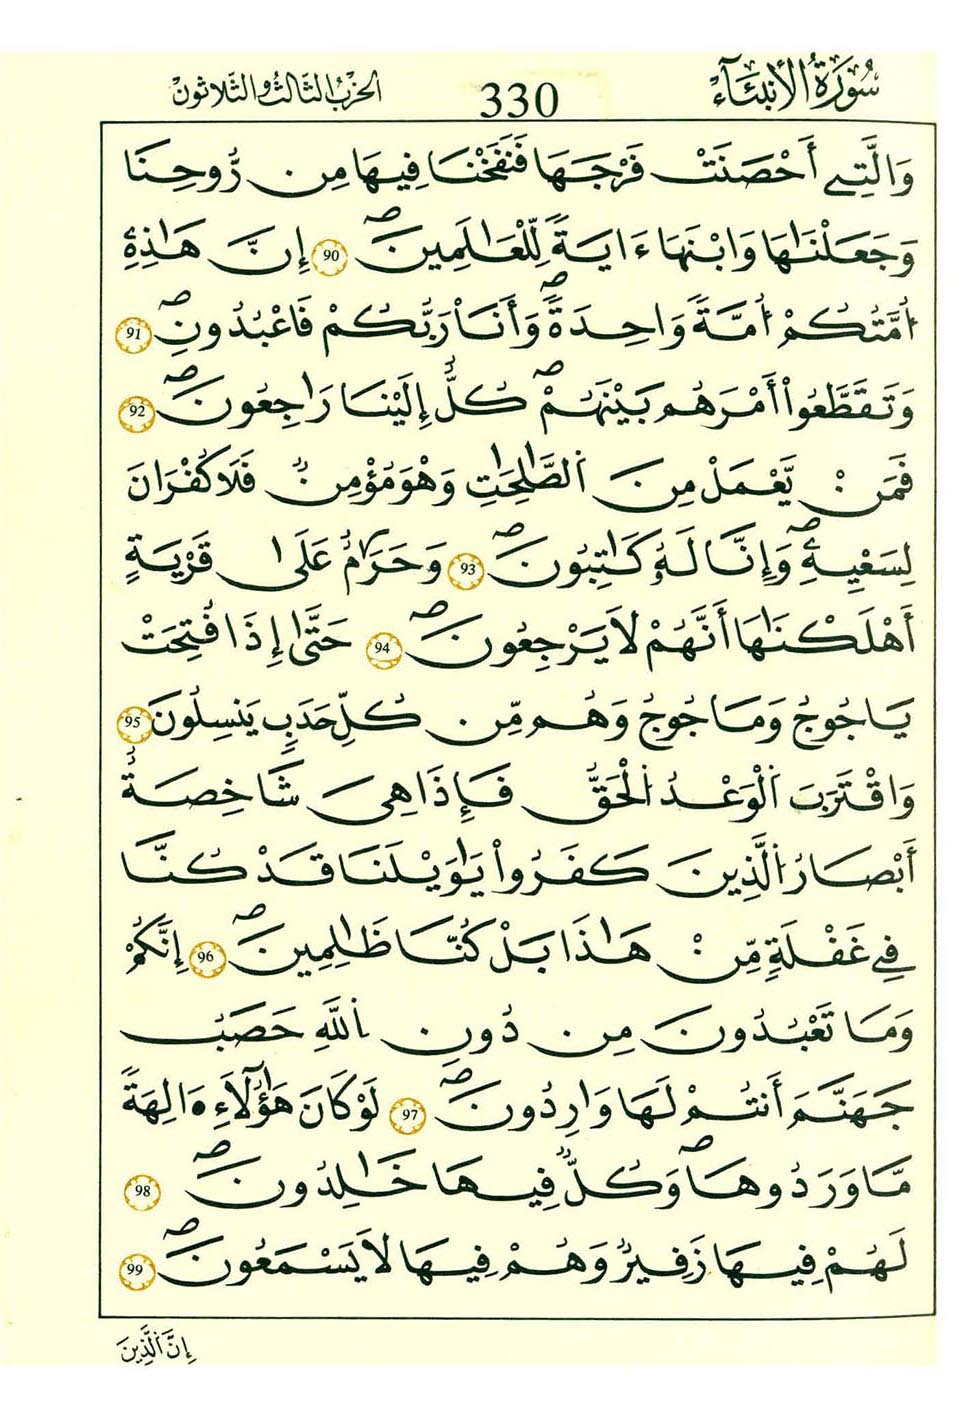 سُورَةُ الْأَنبِيَاءِ 330 الحِزْبُ الثَّالِثُ وَالثَّلَاثُونَ
وَالَّتِے أَحْصَنَتْ فَرْجَهَا فَنَفَخْنَا فِيهَا مِن رُّوحِنَا
وَجَعَلْنَٰهَا وَابْنَهَا ءَايَةٗ لِّلْعَٰلَمِينَۖ 90 إِنَّ هَٰذِهِۦٓ
أُمَّتُكُمْ أُمَّةٗ وَاحِدَةٗۖ وَأَنَا رَبُّكُمْ فَاعْبُدُونِۖ 91
وَتَقَطَّعُواْ أَمْرَهُم بَيْنَهُمْۖ كُلٌّ إِلَيْنَا رَٰجِعُونَۖ 92
فَمَنْ يَّعْمَلْ مِنَ اَ۬لصَّٰلِحَٰتِ وَهْوَ مُؤْمِنٞ فَلَا كُفْرَانَ
لِسَعْيِهِۦۖ وَإِنَّا لَهُۥ كَٰتِبُونَۖ 93 وَحَرَٰمٌ عَلَىٰ قَرْيَةٍ
أَهْلَكْنَٰهَا أَنَّهُمْ لَا يَرْجِعُونَۖ 94 حَتَّىٰ إِذَا فُتِحَتْ
يَاجُوجُ وَمَاجُوجُ وَهُم مِّن كُلِّ حَدَبٖ يَنسِلُونَ 95
وَاقْتَرَبَ اَ۬لْوَعْدُ اُ۬لْحَقُّ فَإِذَا هِيَ شَٰخِصَةٌ
أَبْصَٰرُ اُ۬لَّذِينَ كَفَرُواْ يَٰوَيْلَنَا قَدْ كُنَّا
فِے غَفْلَةٖ مِّنْ هَٰذَا بَلْ كُنَّا ظَٰلِمِينَۖ 96 إِنَّكُمْ
وَمَا تَعْبُدُونَ مِن دُونِ اِ۬للَّهِ حَصَبُ
جَهَنَّمَ أَنتُمْ لَهَا وَٰرِدُونَۖ 97 لَوْ كَانَ هَٰٓؤُلَآءِ ءَالِهَةٗ
مَّا وَرَدُوهَاۖ وَكُلّٞ فِيهَا خَٰلِدُونَۖ 98
لَهُمْ فِيهَا زَفِيرٞ وَهُمْ فِيهَا لَا يَسْمَعُونَۖ 99
إِنَّ اَ۬لَّذِينَ